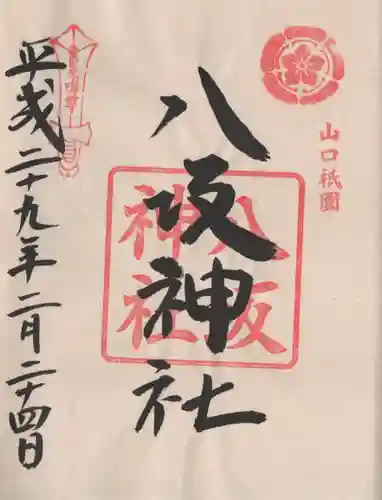 山口祇園
八坂神社
八坂
神社
平成二十九年二月二十四日